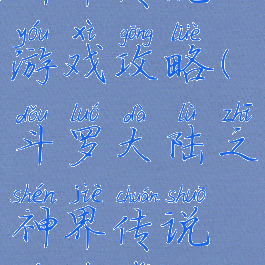 yóu xì gōng lüè
游戏攻略(
dǒu luó dà lù zhī
斗罗大陆之
shén jiè chuán shuō
神界传说